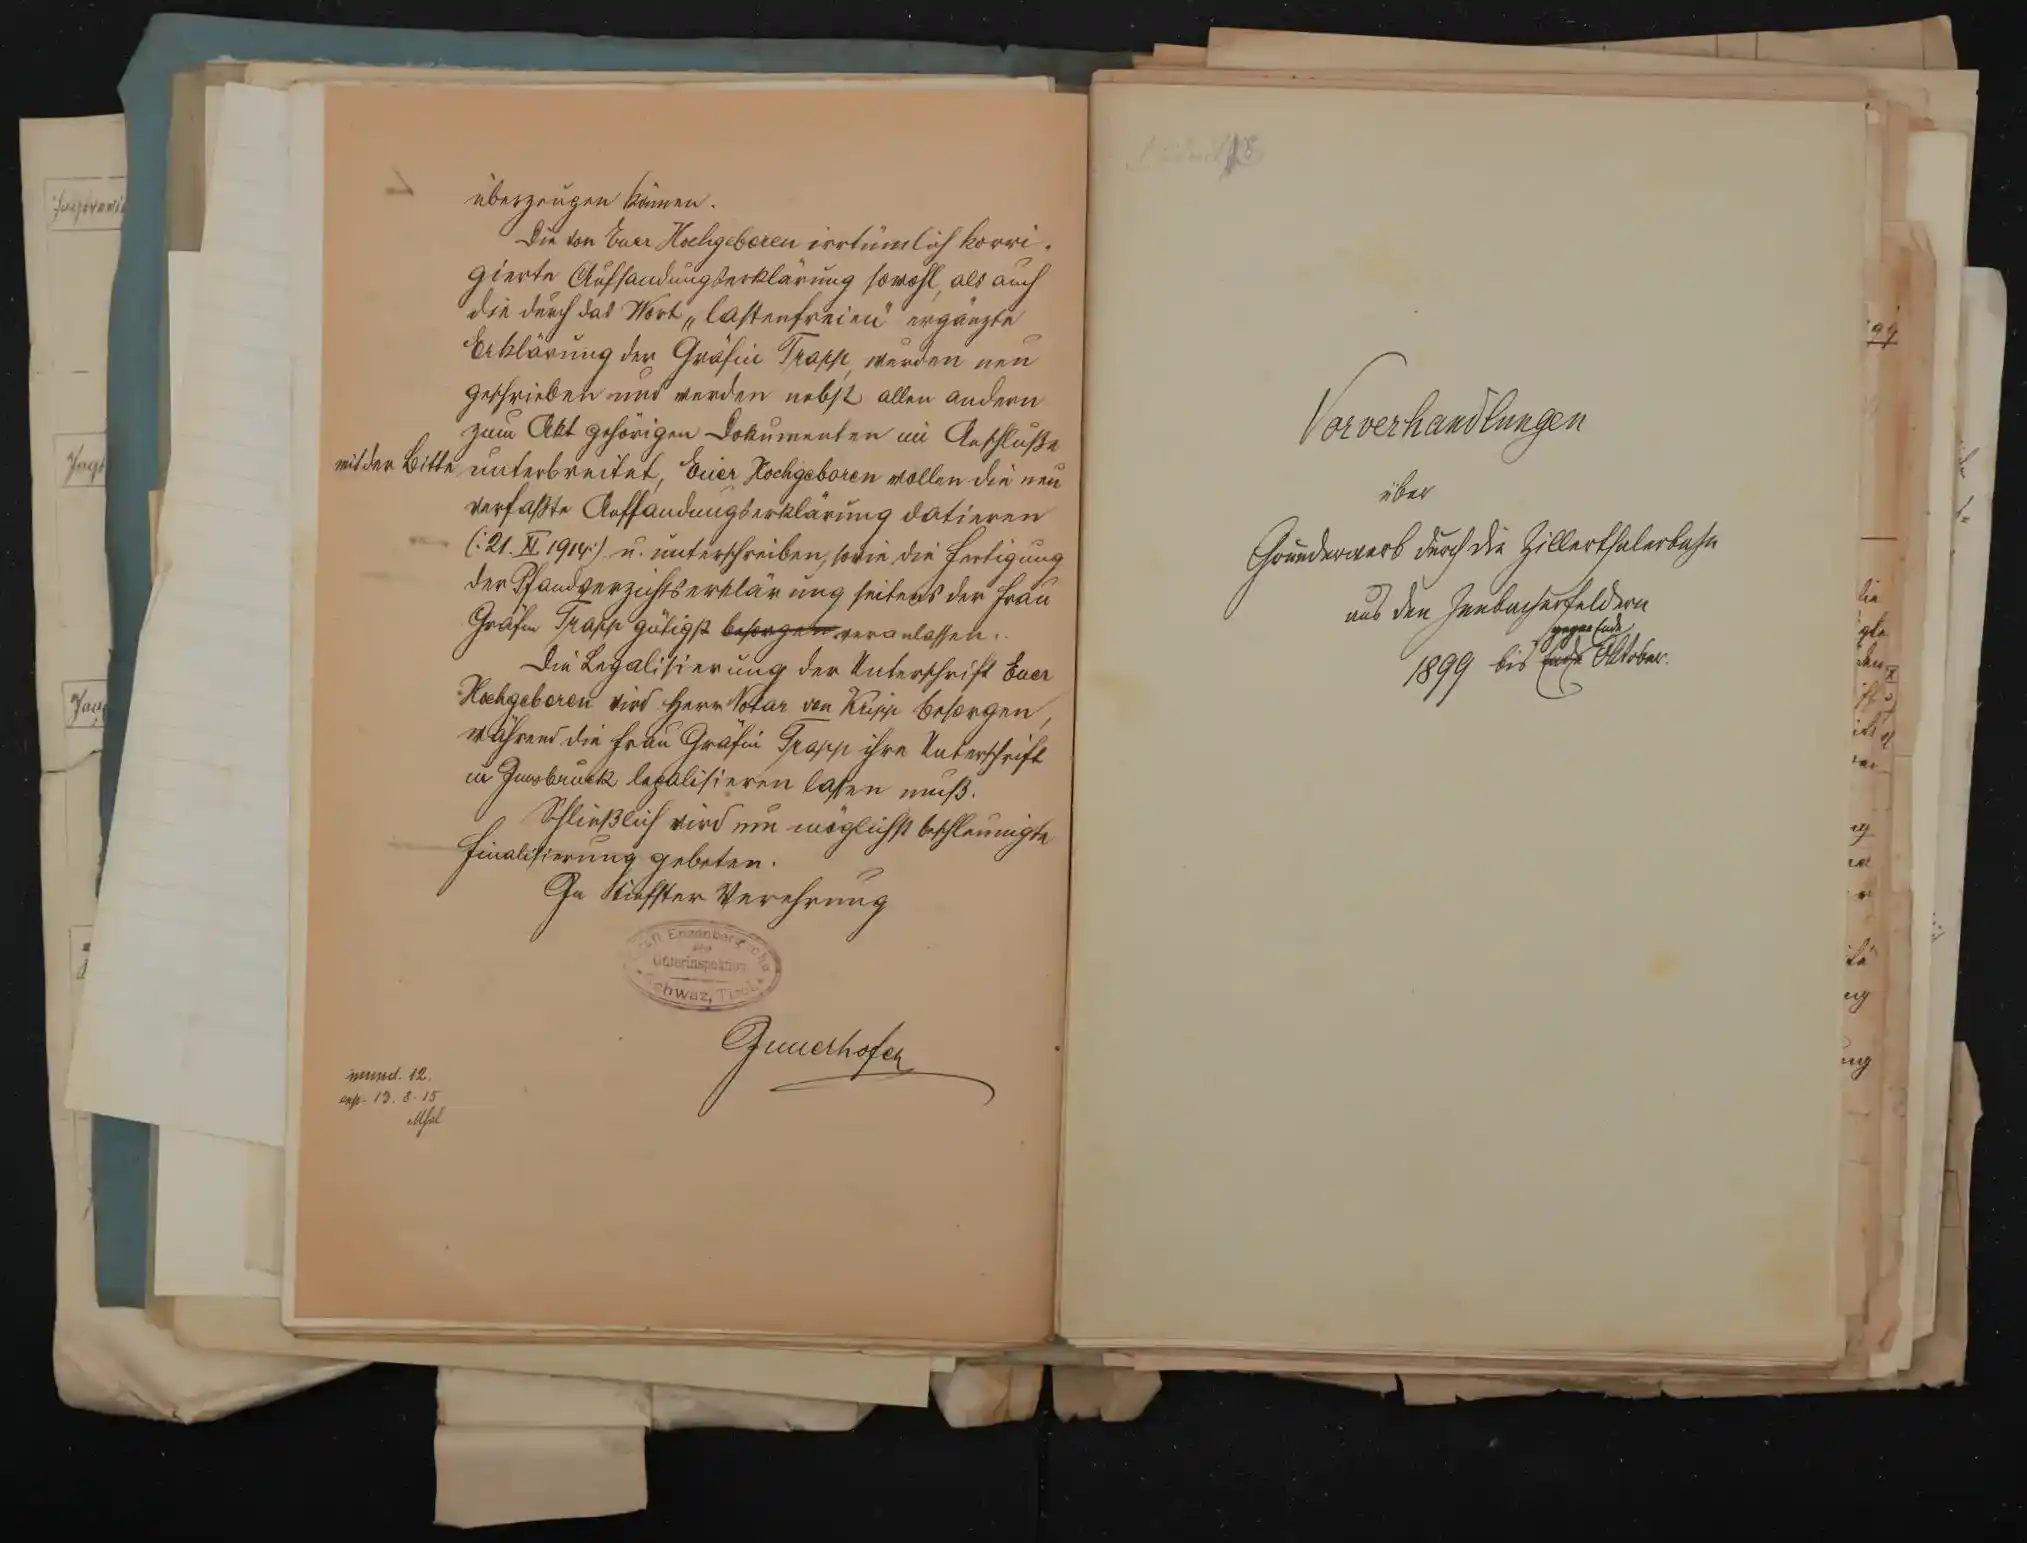 überzeugen können.
Die von Euer Hochgeboren irrtümlich korri-
gierte Aufsandungserklärung sowohl, als auch
die durch das Wort „lastenfreien" ergänzte
Erklärung der Gräfin Trapp, wurden neu
geschrieben und werden nebst allen andern
zum Akt gehörigen Dokumenten im Anschluße
mit der Bitte unterbreitet, Euer Hochgeboren wollen die neu
verfaßte Aufsandungserklärung datieren
(: 21. XI 1914 :) u. unterschreiben, sowie die Fertigung
der Pfandverzichtserklärung seitens der Frau
Gräfin Trapp gütigst besorgen veranlassen.
Die Legalisierung der Unterschrift Euer
Hochgeboren wird Herr Notar von Kripp besorgen,
während die Frau Gräfin Trapp ihre Unterschrift
in Innsbruck legalisieren lassen muß.
Schließlich wird um möglichst beschleunigte
Finalisierung gebeten.
In tiefster Verehrung
Enzenberg'sche
Güterinspektion
Schwaz, Tirol
Innerhofer
mund. 12.
exp. 13. 8. 15
Vorverhandlungen
über
Grunderwerb durch die Zillerthalerbahn
aus den Jenbacherfeldern
gegen Ende
1899 bis Ende Oktober.